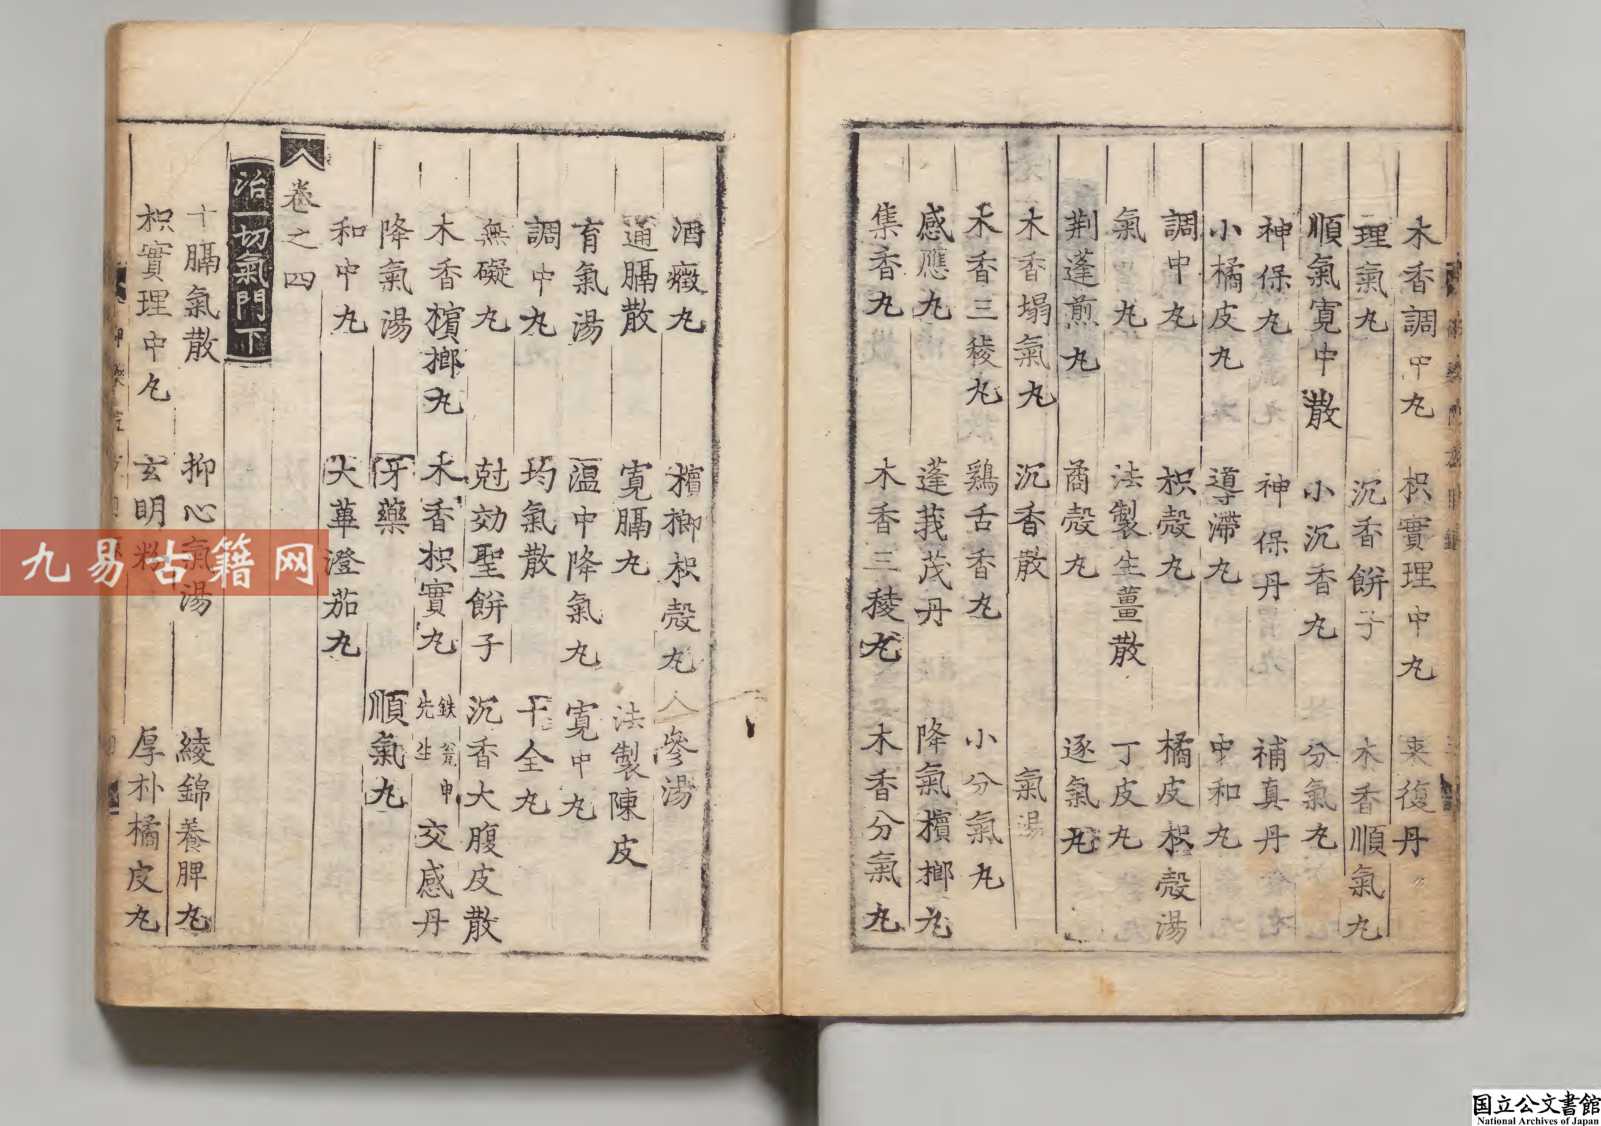 木香調中丸　枳實理中丸　来復丹
理氣丸　沉香餅子　木香順氣丸
順氣寛中散　小沉香丸　分氣丸
神保丸　神保丹　補真丹
小橘皮丸　導滯丸　中和丸
調中丸　枳殼丸　橘皮枳殼湯
氣丸　法製生薑散　丁皮丸
荆蓬煎丸　橘殼丸　逐氣丸
木香塌氣丸　沉香散　氣湯
木香三稜丸　鷄舌香丸　小分氣丸
感應丸　蓬莪茂丹　降氣檳榔丸
集香丸　木香三稜丸　木香分氣丸
酒癥丸　檳榔枳殼丸　人參湯
通膈散　寛膈丸　法製陳皮
育氣湯　溫中降氣丸　寛中丸
調中丸　均氣散　千全丸
無礙丸　尅効聖餅子　沉香大腹皮散
木香檳榔丸　木香枳實丸　鉄瓮申先生交感丹
降氣湯　牙藥　順氣丸
和中丸　大蓽澄茄丸
卷之四
治一切氣門下
十膈氣散　抑心氣湯　綾錦養脾丸
枳實理中丸　玄明粉　厚朴橘皮丸
九易古籍网
国立公文書館
National Archives of Japan